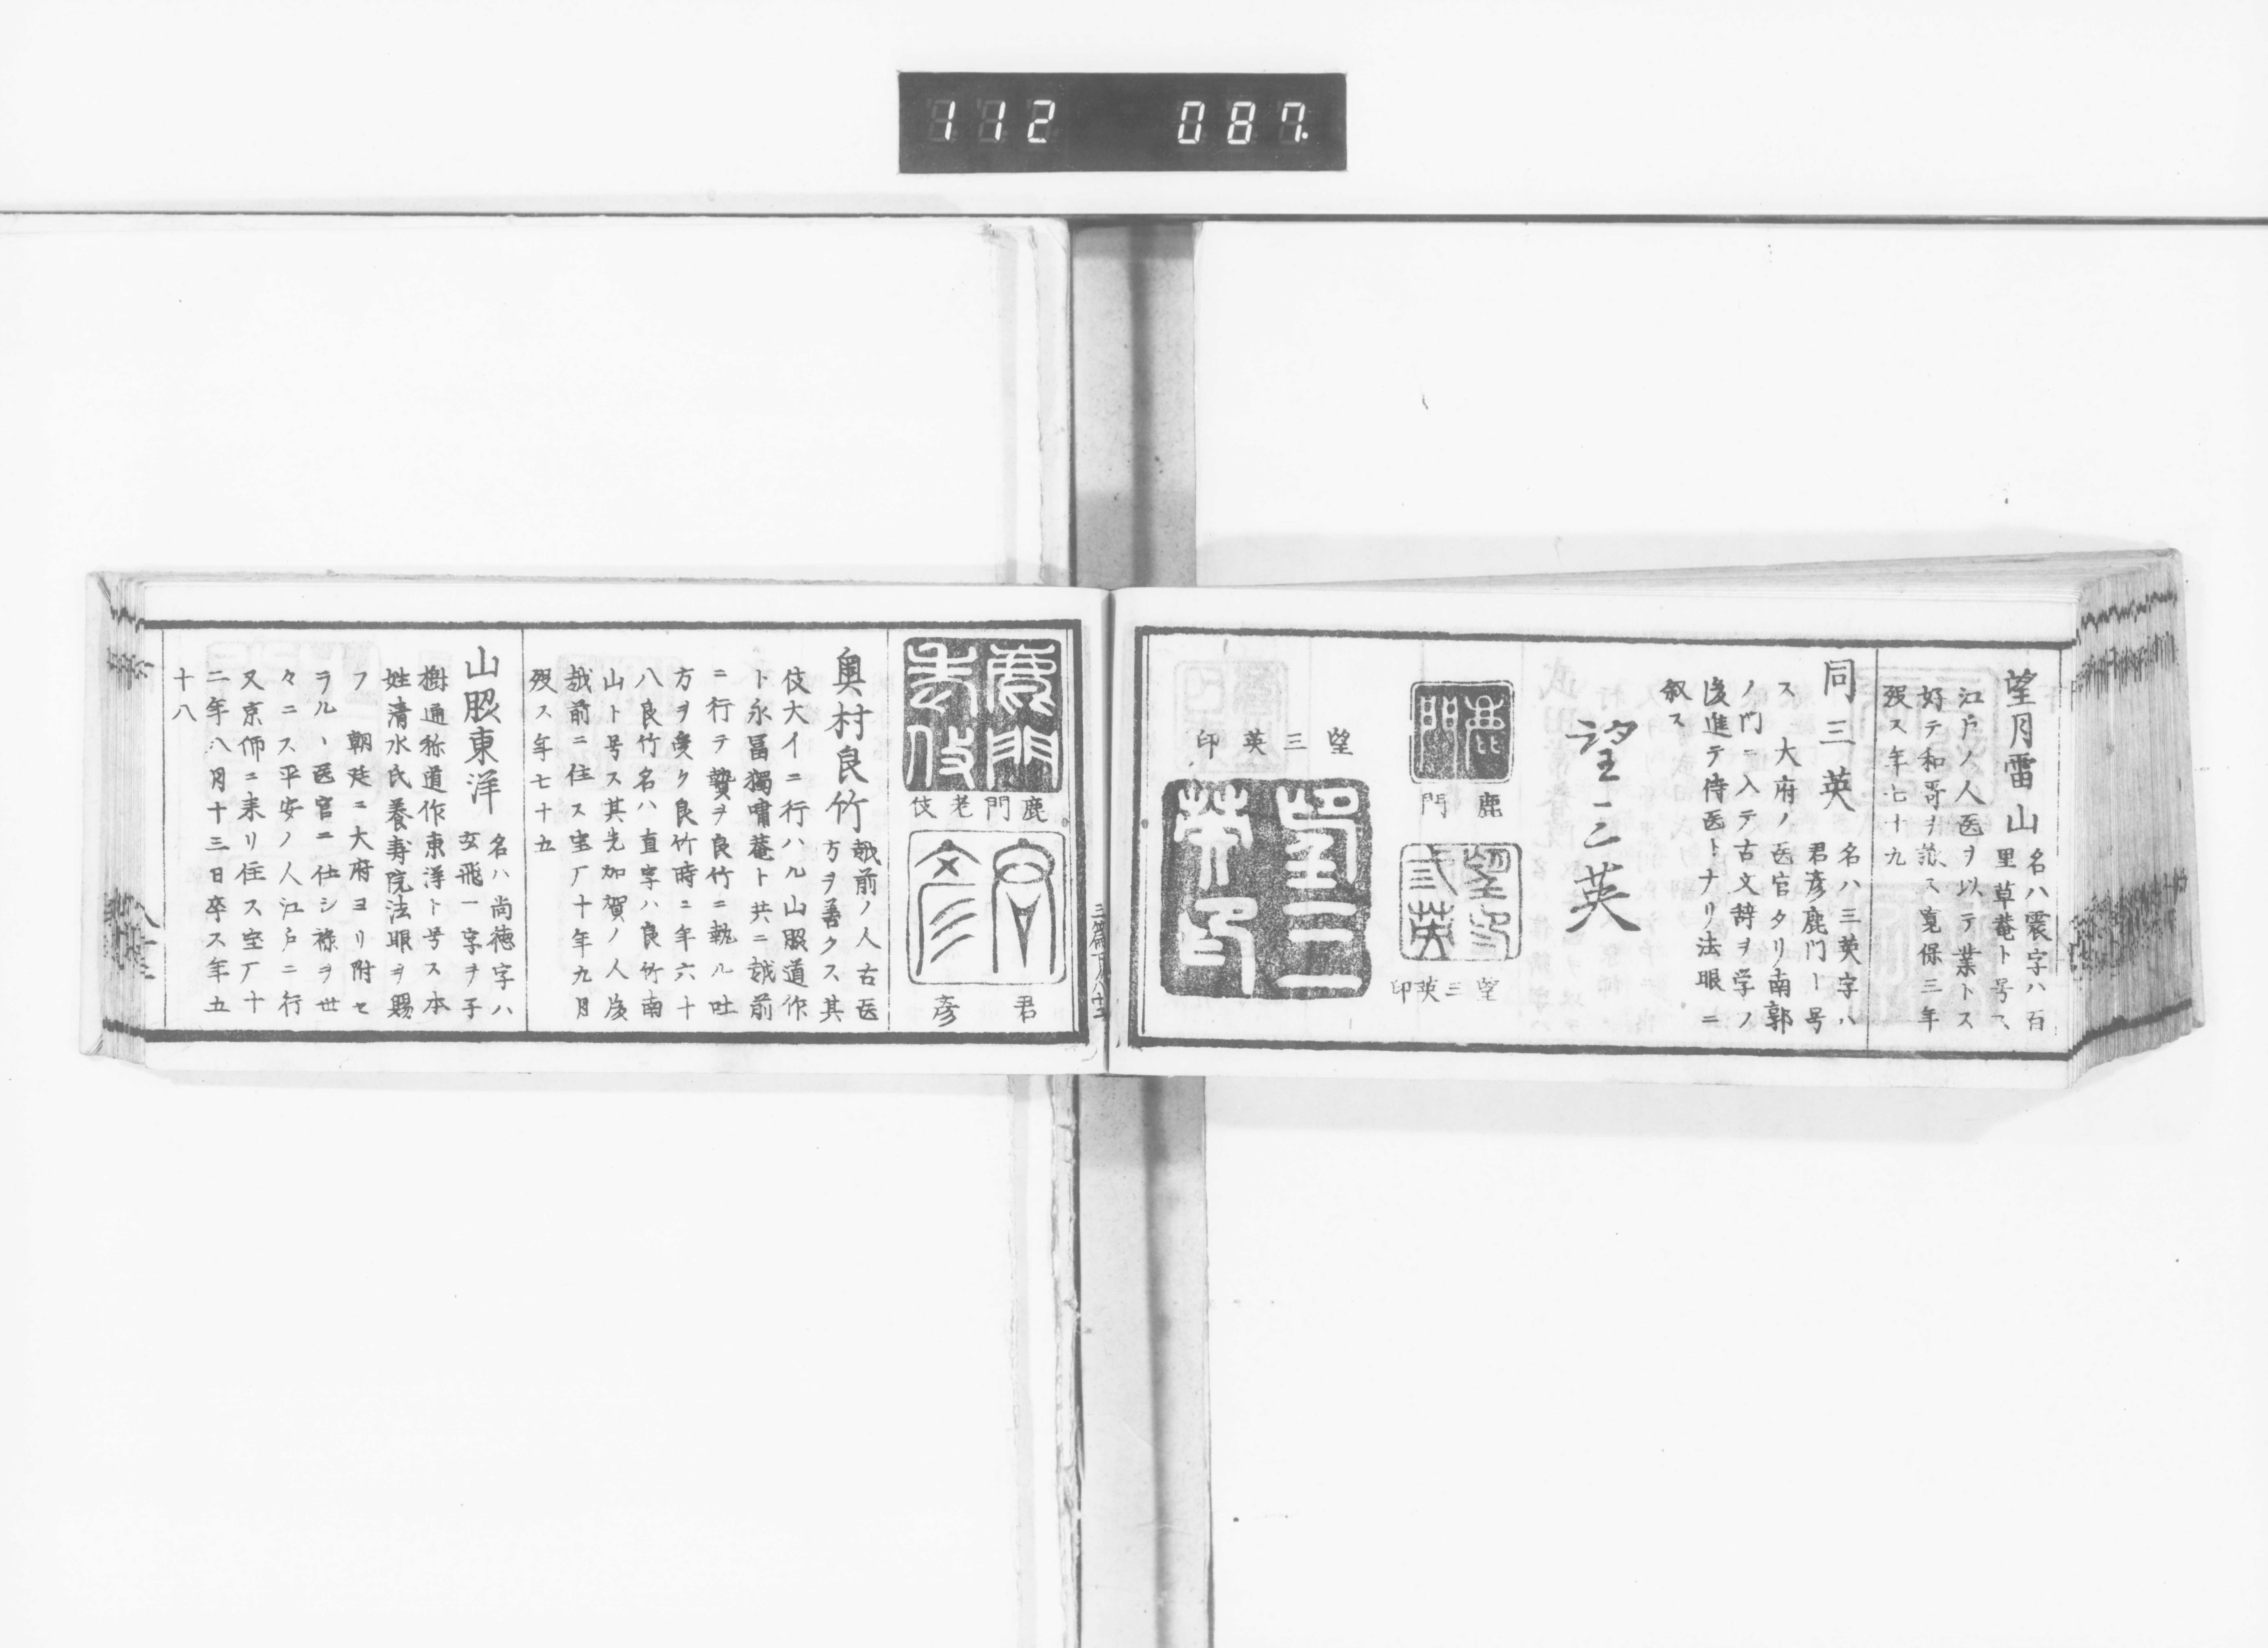 112 087.
望月雷山 名ハ震字ハ百
里草菴ト号ス
江戸ノ人医ヲ以テ業トス
好テ和哥ヲ詠ス寛保三年
歿ス年七十九
同三英 名ハ三英字ハ
君彦鹿門ト号
ス 大府ノ医官タリ南郭
ノ門ニ入テ古文辞ヲ学ノ
後進テ侍医トナリ法眼ニ
叙ス
望三英
鹿門
望三英印
望三英印
三篇百八十三
鹿門老伎
君彦
奥村良竹 越前ノ人古医
方ヲ善クス其
伎大イニ行ハル山脇道作
ト永冨獨嘯菴ト共ニ越前
ニ行テ贄ヲ良竹ニ執ル吐
方ヲ受ク良竹時ニ年六十
八良竹名ハ直字ハ良竹南
山ト号ス其先加賀ノ人後
越前ニ住ス宝厂十年九月
歿ス年七十五
山脇東洋 名ハ尚徳字ハ
玄飛一字ヲ子
樹通称道作東洋ト号ス本
姓清水氏養寿院法眼ヲ賜
フ 朝廷ニ大府ヨリ附セ
ラル丶医官ニ仕シ禄ヲ世
々ニス平安ノ人江戸ニ行
又京師ニ来リ住ス宝厂十
二年八月十三日卒ス年五
十八